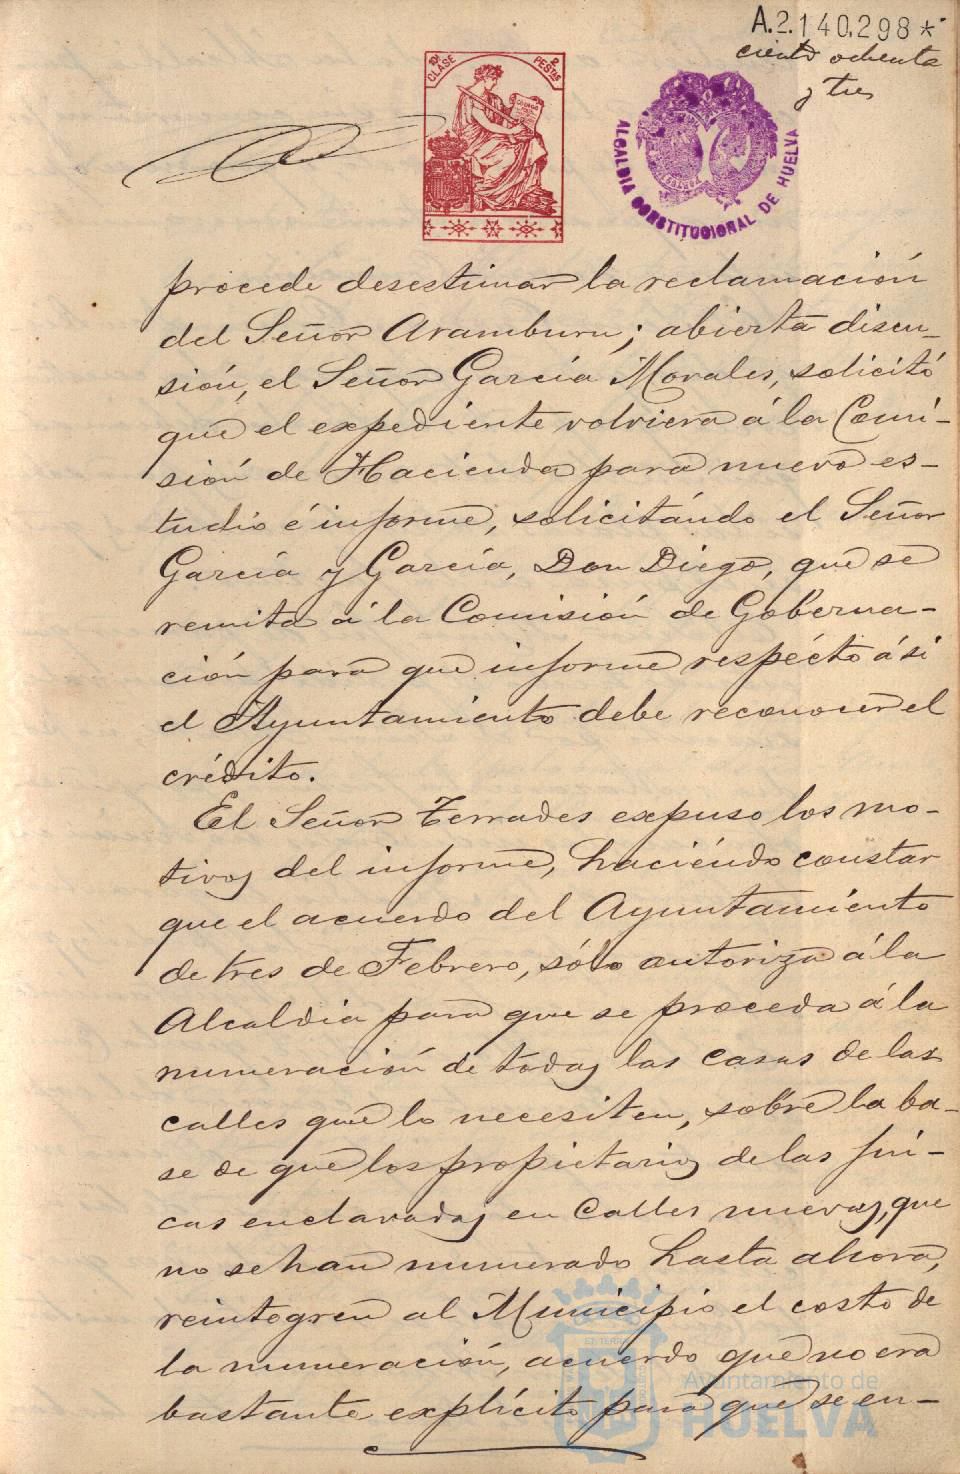 A.2.140,298*
ciento ochenta
y tres
10ª CLASE 2 PESTAS
ALCALDIA CONSTITUCIONAL DE HUELVA
procede desestimar la reclamación
del Señor Aramburu; abierta discu-
sión, el Señor García Morales, solicitó
que el expediente volviera á la Comi-
sión de Hacienda para nuevo es-
tudio é informe, solicitándo el Señor
García y García, Don Diego, que se
remita á la Comisión de Goberna-
ción para que informe respécto á si
el Ayuntamiento debe reconocer el
crédito.
El Señor Terrades expuso los mo-
tivos del informe, haciéndo constar
que el acuerdo del Ayuntamiento
de tres de Febrero, sólo autoriza á la
Alcaldia para que se proceda á la
numeración de todas las casas de las
calles que lo necesiten, sobre la ba-
se de que los propietarios de las fin-
cas enclavadas en calles nuevas, que
no se han numerado hasta ahora,
reintegren al Municipio el costo de
la numeración, acuerdo que no era
bastante explícito para que se en-
Ayuntamiento de
HUELVA